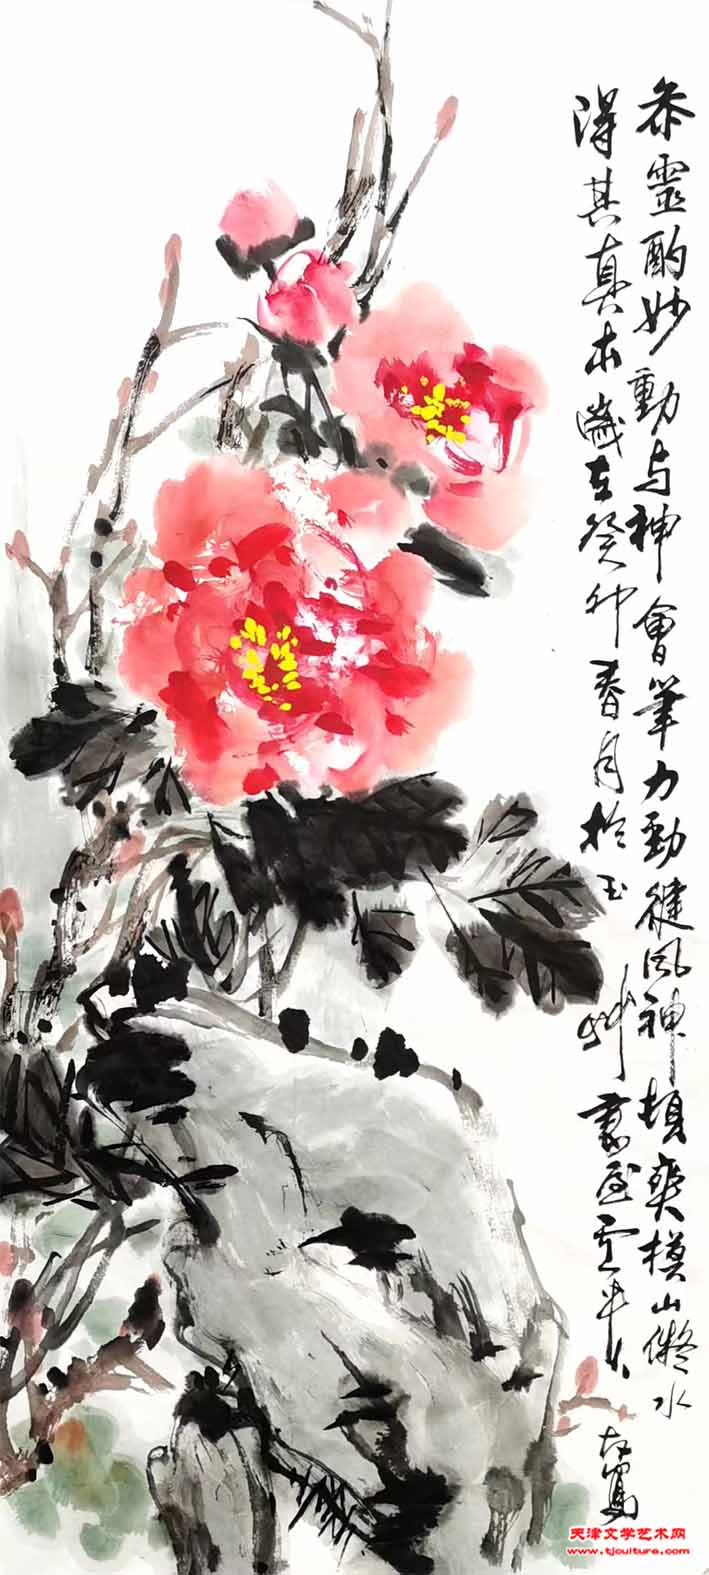 叅靈酌妙動与神會筆力勁健風神頓爽模山儗水
得其真本歲在癸卯春月於玉艸書屋雲半人寫
天津文学艺术网
www.tjculture.com